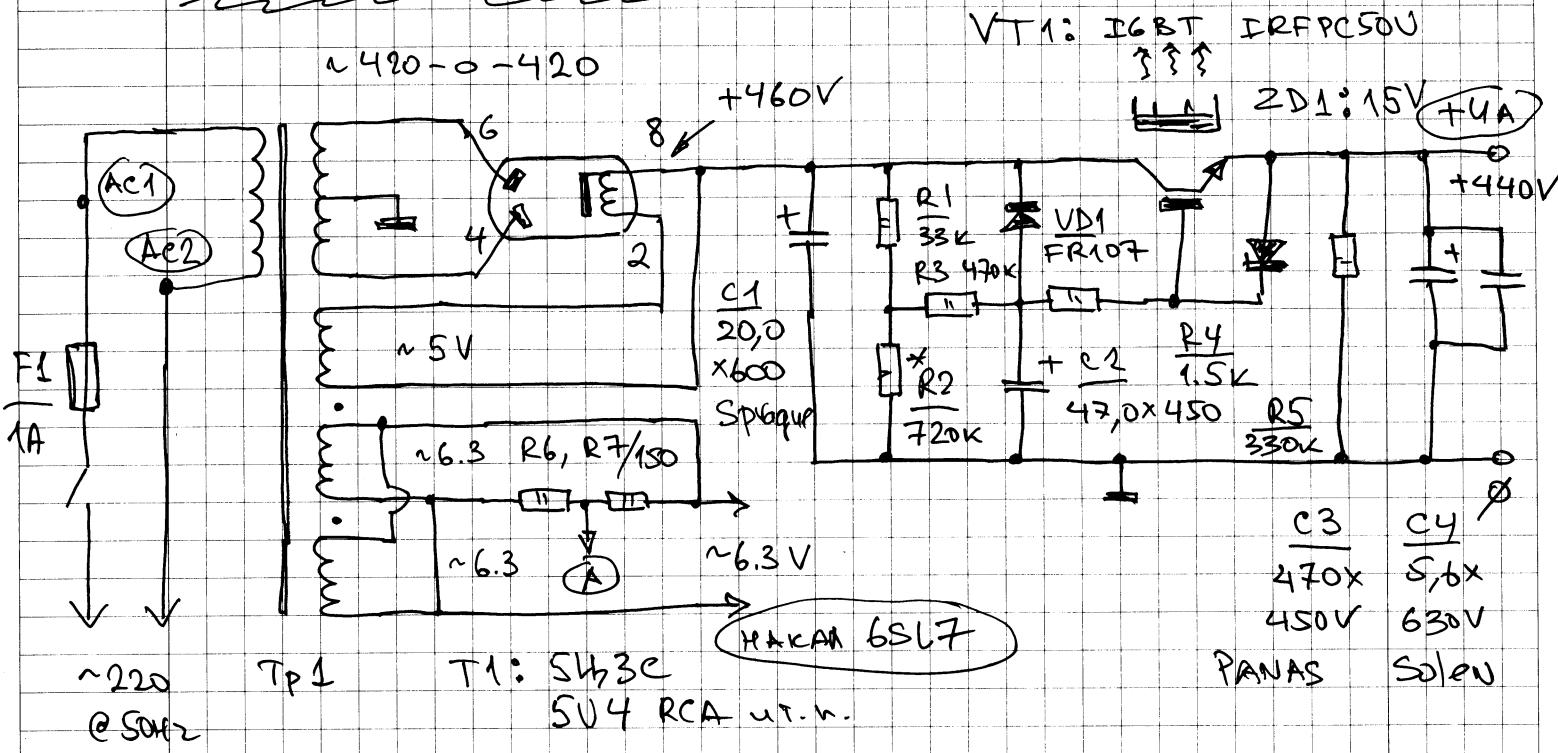 VT1: IGBT IRFPC50U
~420-0-420
+460V
ZD1: 15V
+UA
6
8
AC1
AC2
4
2
R1
33K
VD1
FR107
+440V
R3 470K
C1
20,0
x600
Sprague
~5V
F1
1A
*
R2
720K
+ C2
47,0x450
R4
1.5K
R5
330K
~6.3 R6, R7/150
~6.3
A
~6.3V
НАКАЛ 6SL7
Ø
C3
470x
450V
PANAS
C4
5,6x
630V
Solen
~220
@50Hz
Tp1
T1: 5Ц3С
5U4 RCA и т.п.